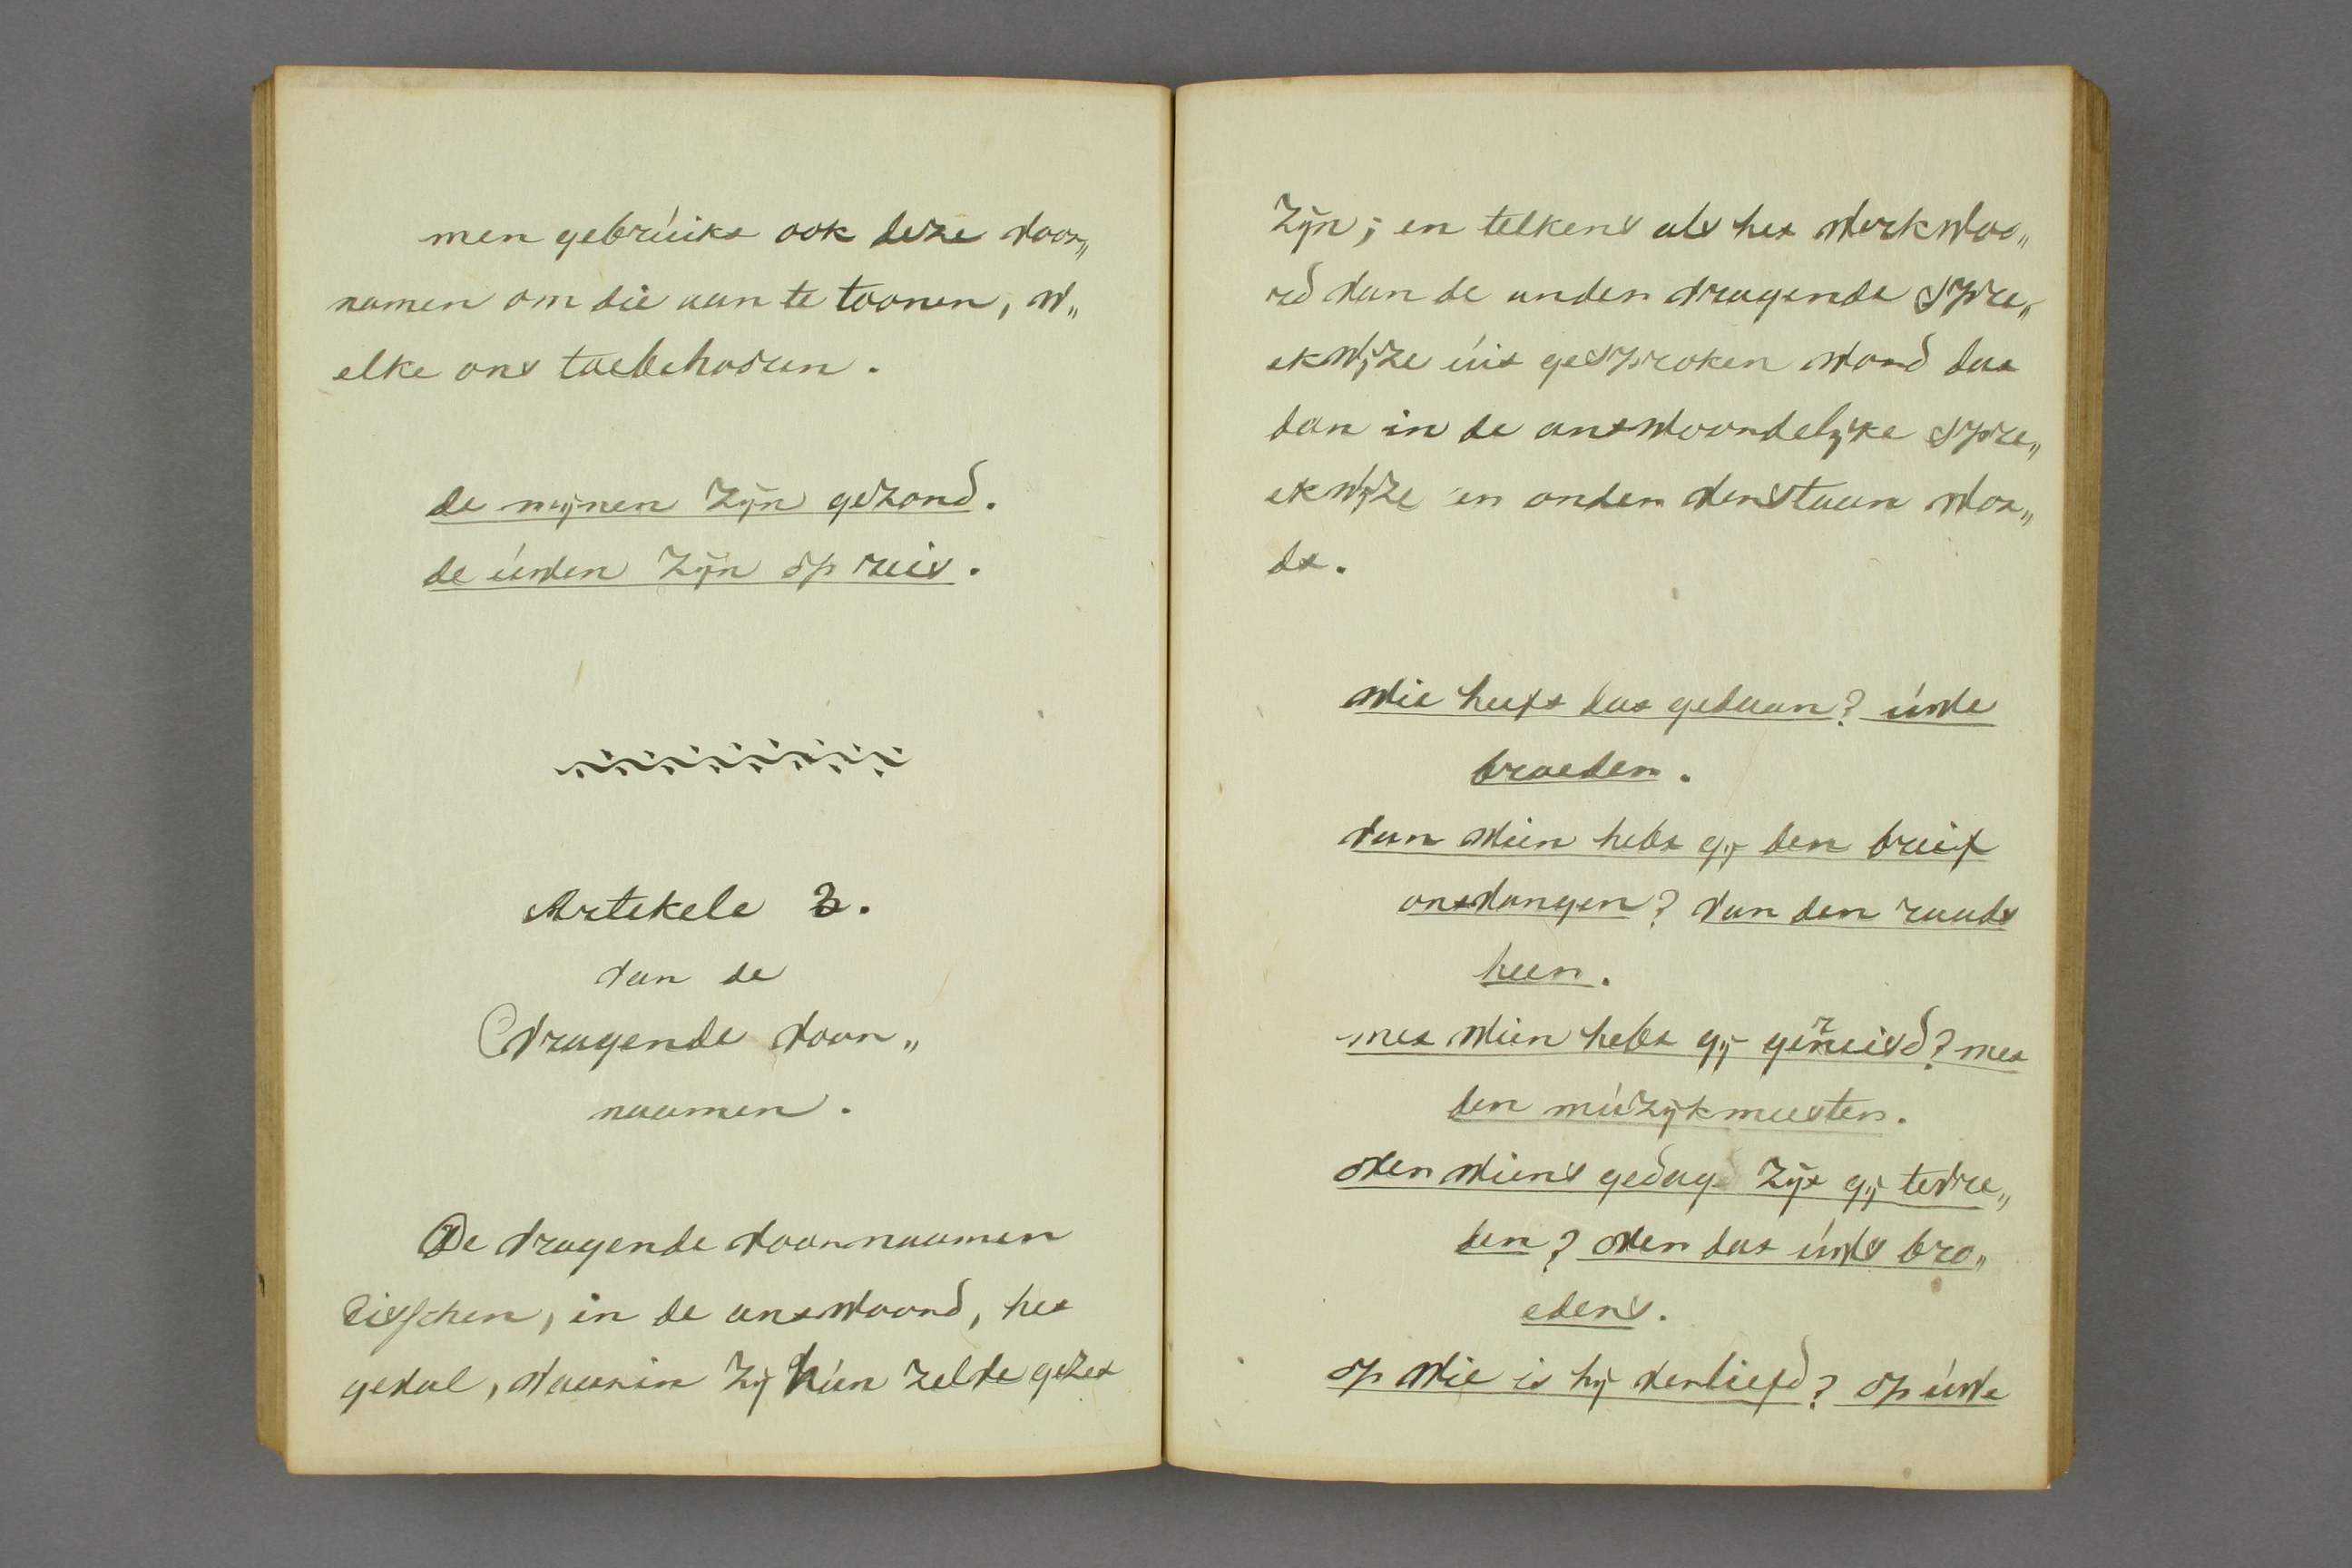 men gebrúikt ook deze voor„
namen om die aan te toonen, w„
elke ons toebehooren.
de mijnen zijn gezond.
de úwen zijn op reis.
Artekele 3.
van de
Vragende voor„
naamen.
De vragende voornaamen
eisschen, in de antwoord, het
geval, waarin zij hún zelve gezet
zijn; en telkens als het werkwoo„
rd van de onder vragende spre„
ekwijze úit gesproken word dat
dan in de antwoordelijke spre„
ekwijze er onder verstaan wor„
dt.
wie heeft dat gedaan? úwe
broeder.
van wien hebt gij den brief
ontvangen? van den raads
heer.
met wien hebt gij gereisd? met
den múzijkmeester.
over wiens gedag zijt gij tevre„
den? over dat úws bro„
eders.
op wie is hij verliefd? op úwe